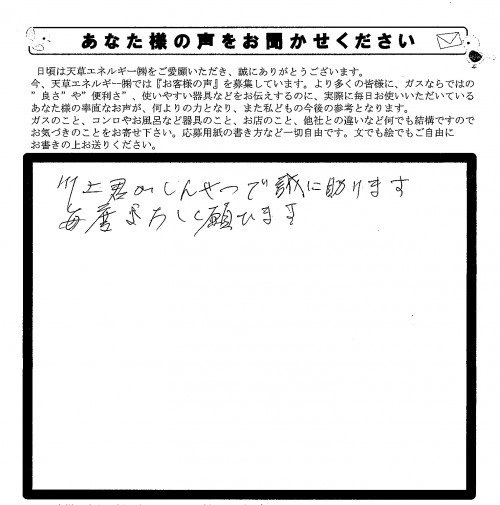 あなた様の声をお聞かせください
日頃は天草エネルギー㈱をご愛顧いただき、誠にありがとうございます。
今、天草エネルギー㈱では『お客様の声』を募集しています。より多くの皆様に、ガスならではの
”良さ”や”便利さ”、使いやすい器具などをお伝えするのに、実際に毎日お使いいただいている
あなた様の率直なお声が、何よりの力となり、また私どもの今後の参考となります。
ガスのこと、コンロやお風呂など器具のこと、お店のこと、他社との違いなど何でも結構ですので
お気づきのことをお寄せ下さい。応募用紙の書き方など一切自由です。文でも絵でもご自由に
お書きの上お送りください。
川上君がしんせつで誠に助けります
毎度よろしく願ひます